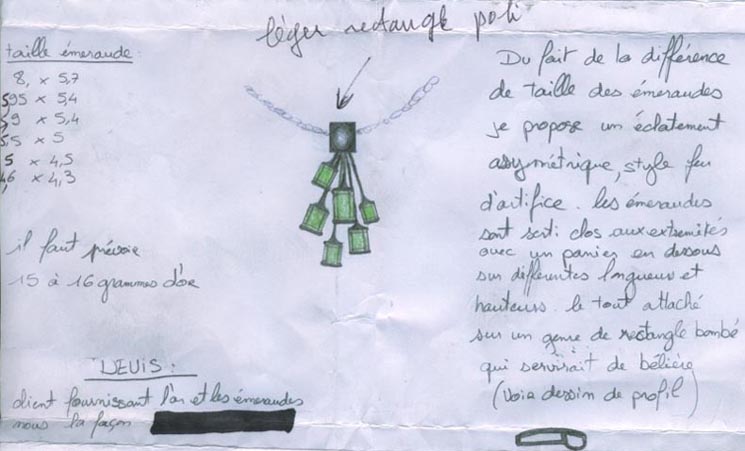 léger rectangle poli
taille émeraude :
8, x 5,7
5,95 x 5,4
5,9 x 5,4
5,5 x 5
5 x 4,5
4,6 x 4,3
il faut prévoir
15 à 16 grammes d'or
DEVIS :
client fournissant l'or et les émeraudes
nous la façon
Du fait de la différence
de taille des émeraudes
je propose un éclatement
assymétrique, style feu
d'artifice. les émeraudes
sont serti clos aux extremités
avec un panier en dessous
sur différentes longueurs et
hauteurs. le tout attaché
sur un genre de rectangle bombé
qui servirait de bélière
(Voir dessin de profil)